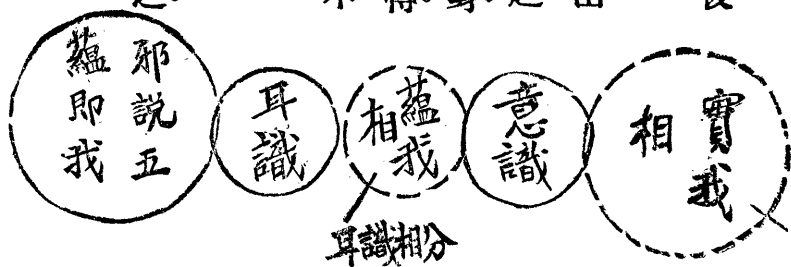 邪說五
蘊即我
耳識
蘊我
相
意識
實我
相
耳識相分